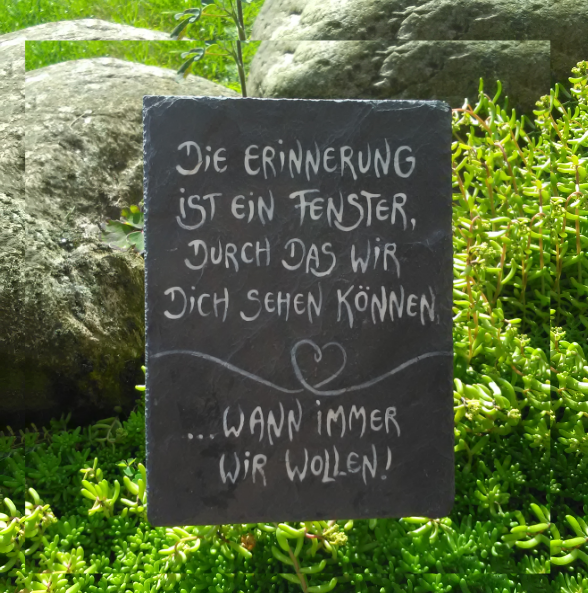 DiE ERiNNERUNG
iST EiN FENSTER,
DURCH DAS WiR
DiCH SEHEN KÖNNEN
...WANN iMMER
WiR WOLLEN!